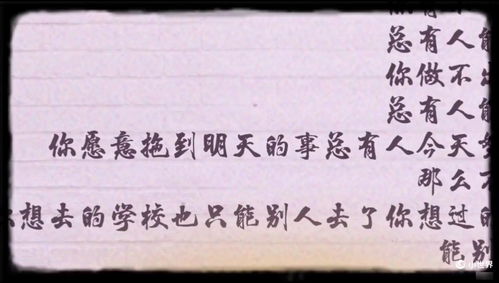 总有人能
你做不
总有人能
你愿意拖到明天的事总有人今天
那么
想去的学校也只能别人去了你想过的
能别
小世界